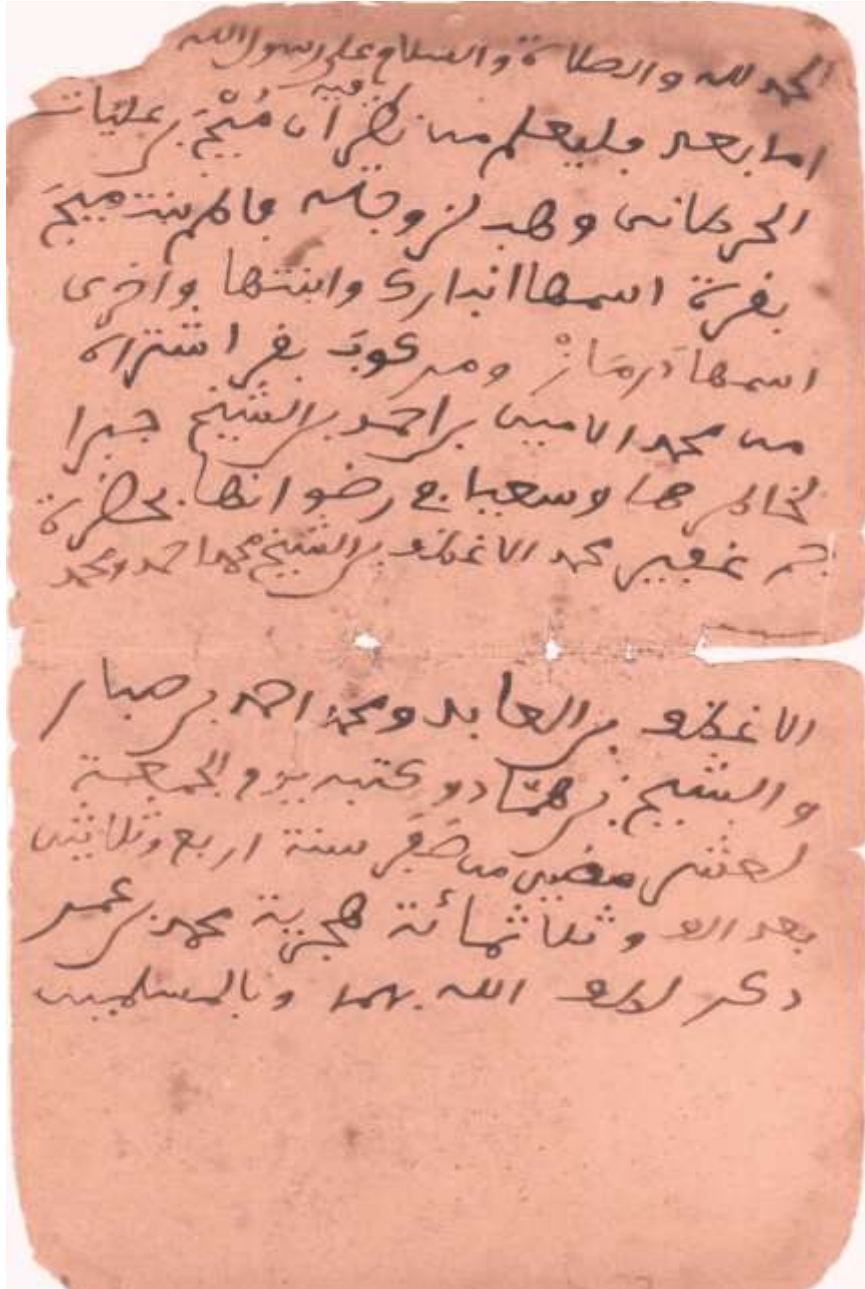 الحمد لله والصلاة والسلام على رسول الله
اما بعد فليعلم من نظر فيه ان مُيْجَ بن عليات
الحرطاني وهب لزوجته فاطم بنت ميجَ
بقرة اسمها انداري وابنتها واخرى
اسمها درمَازْ ومركوبَ بقر اشتراه
من محمد الامين بن احمد بن الشيخ جبرا
لخاطرها وسعيا في رضوانها بحضرة
جم غفير محمد الاغظف بن الشيخ محمد احمد ومحمد
الاغظف بن العابد ومحمد احمد بن صبار
والشيخ بن همّادو كتبه يوم الجمعة
لعشر مضين من صَفَر سنة اربع وثلاثين
بعد الف وثلاثمائة هجرية محمد بن عمر
دكر لطف الله بهما وبالمسلمين